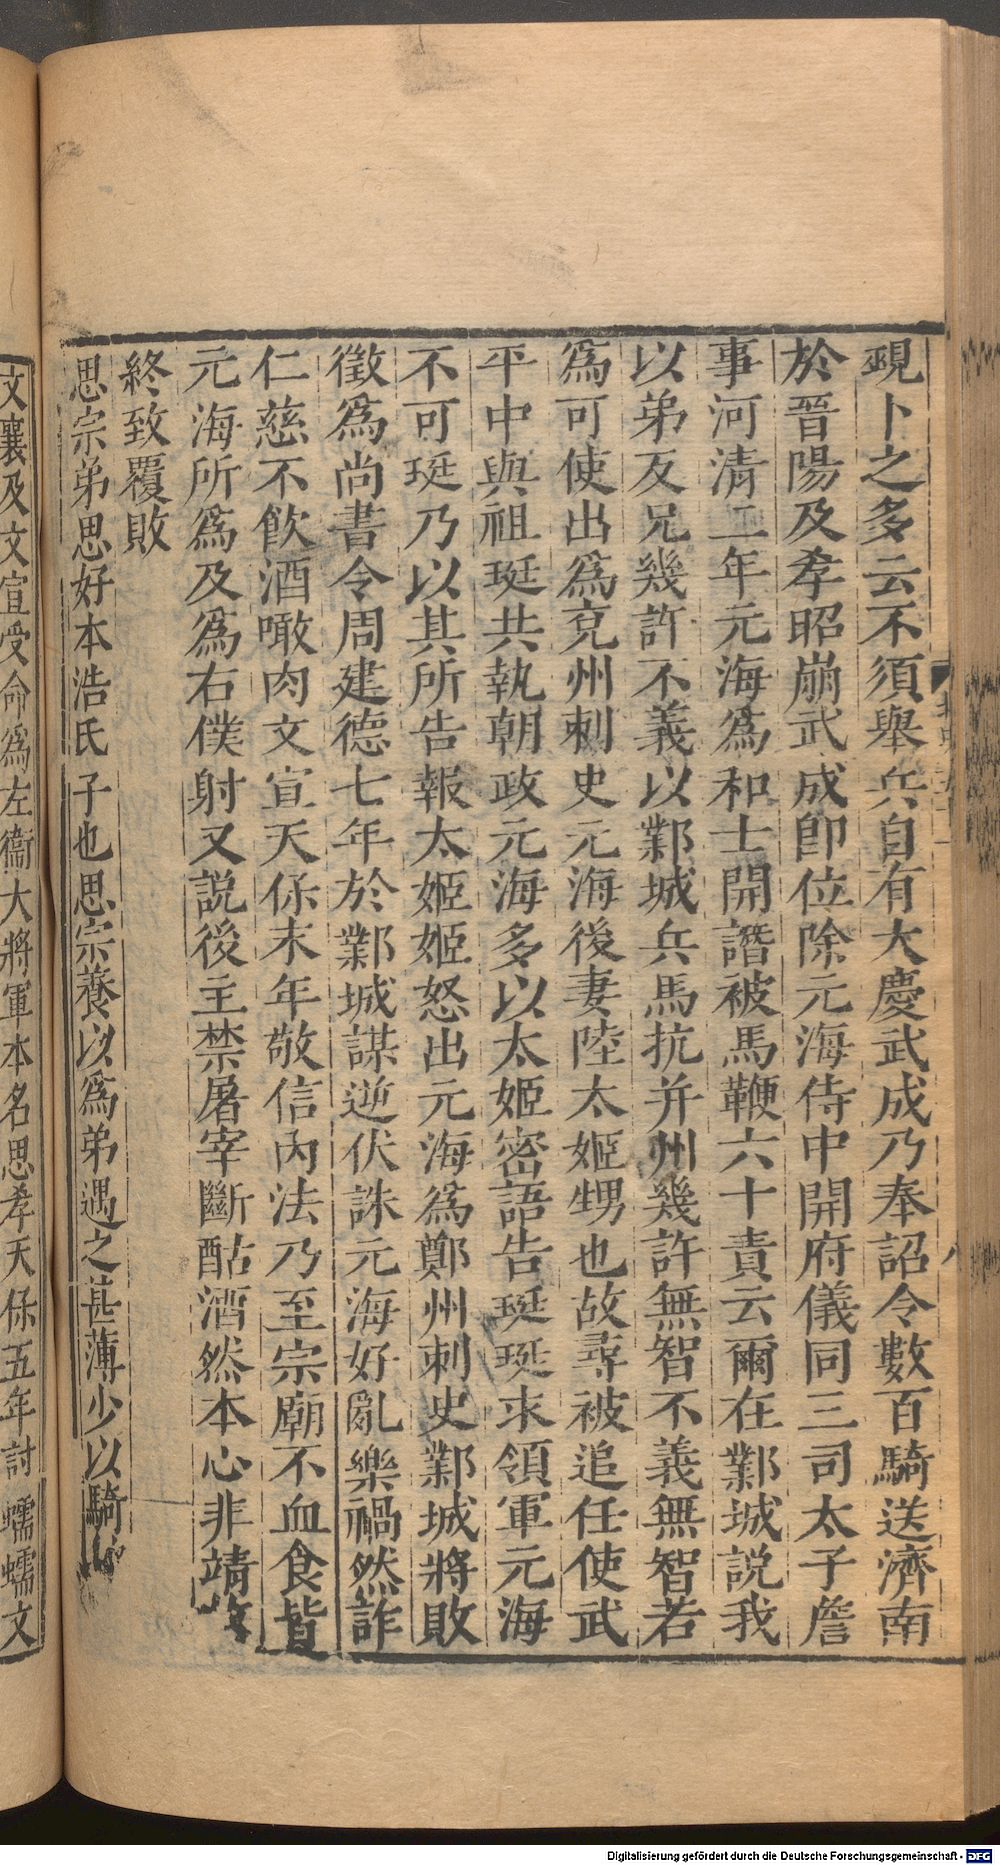 覡卜之多云不須舉兵自有大慶武成乃奉詔令數百騎送濟南
於晉陽及孝昭崩武成即位除元海侍中開府儀同三司太子詹
事河清二年元海爲和士開譖被馬鞭六十責云爾在鄴城說我
以弟反兄幾許不義以鄴城兵馬抗并州幾許無智不義無智若
爲可使出爲兗州刺史元海後妻陸太姬甥也故尋被追任使武
平中與祖珽共執朝政元海多以太姬密語告珽珽求領軍元海
不可珽乃以其所告報太姬姬怒出元海爲鄭州刺史鄴城將敗
徵爲尚書令周建德七年於鄴城謀逆伏誅元海好亂樂禍然詐
仁慈不飲酒噉肉文宣天保末年敬信內法乃至宗廟不血食皆
元海所爲及爲右僕射又說後主禁屠宰斷酤酒然本心非靖故
終致覆敗
思宗弟思好本浩氏子也思宗養以爲弟遇之甚薄少以騎
文襄及文宣受命爲左衞大將軍本名思孝天保五年討蠕蠕文
Digitalisierung gefördert durch die Deutsche Forschungsgemeinschaft - DFG